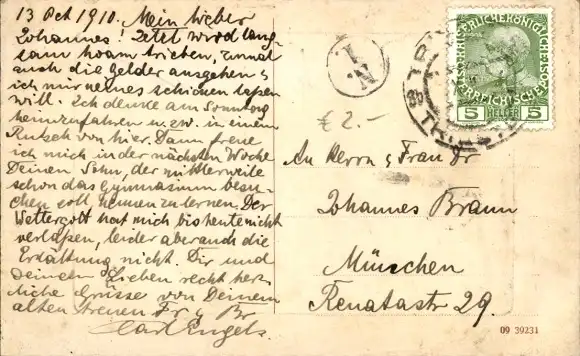 13 Oct 1910. Mein lieber
Johannes! Jetzt wird lang-
sam heim trieben, zumal
auch die Gelder ausgehen &
ich mir keines schicken laßen
will. Ich denke am Sonntag
heimzufahren u. zw. in einem
Rutsch von hier. Dann freue
ich mich in der nächsten Woche
Deinen Sohn, der mittlerweile
schon das Gymnasium besu-
chen soll, kennen zu lernen. Der
Wettergott hat mich bis heute nicht
verlaßen, leider aber auch die
Erkältung nicht. Dir und
Deinen Lieben recht herz-
liche Grüsse von Deinem
alten treuen Fr & Br
Carl Engels.
I
N
€ 2.-
5 HELLER 5
TRIEST
An Herrn & Frau Dr
Johannes Braun
München
Renatastr 29.
09 39231